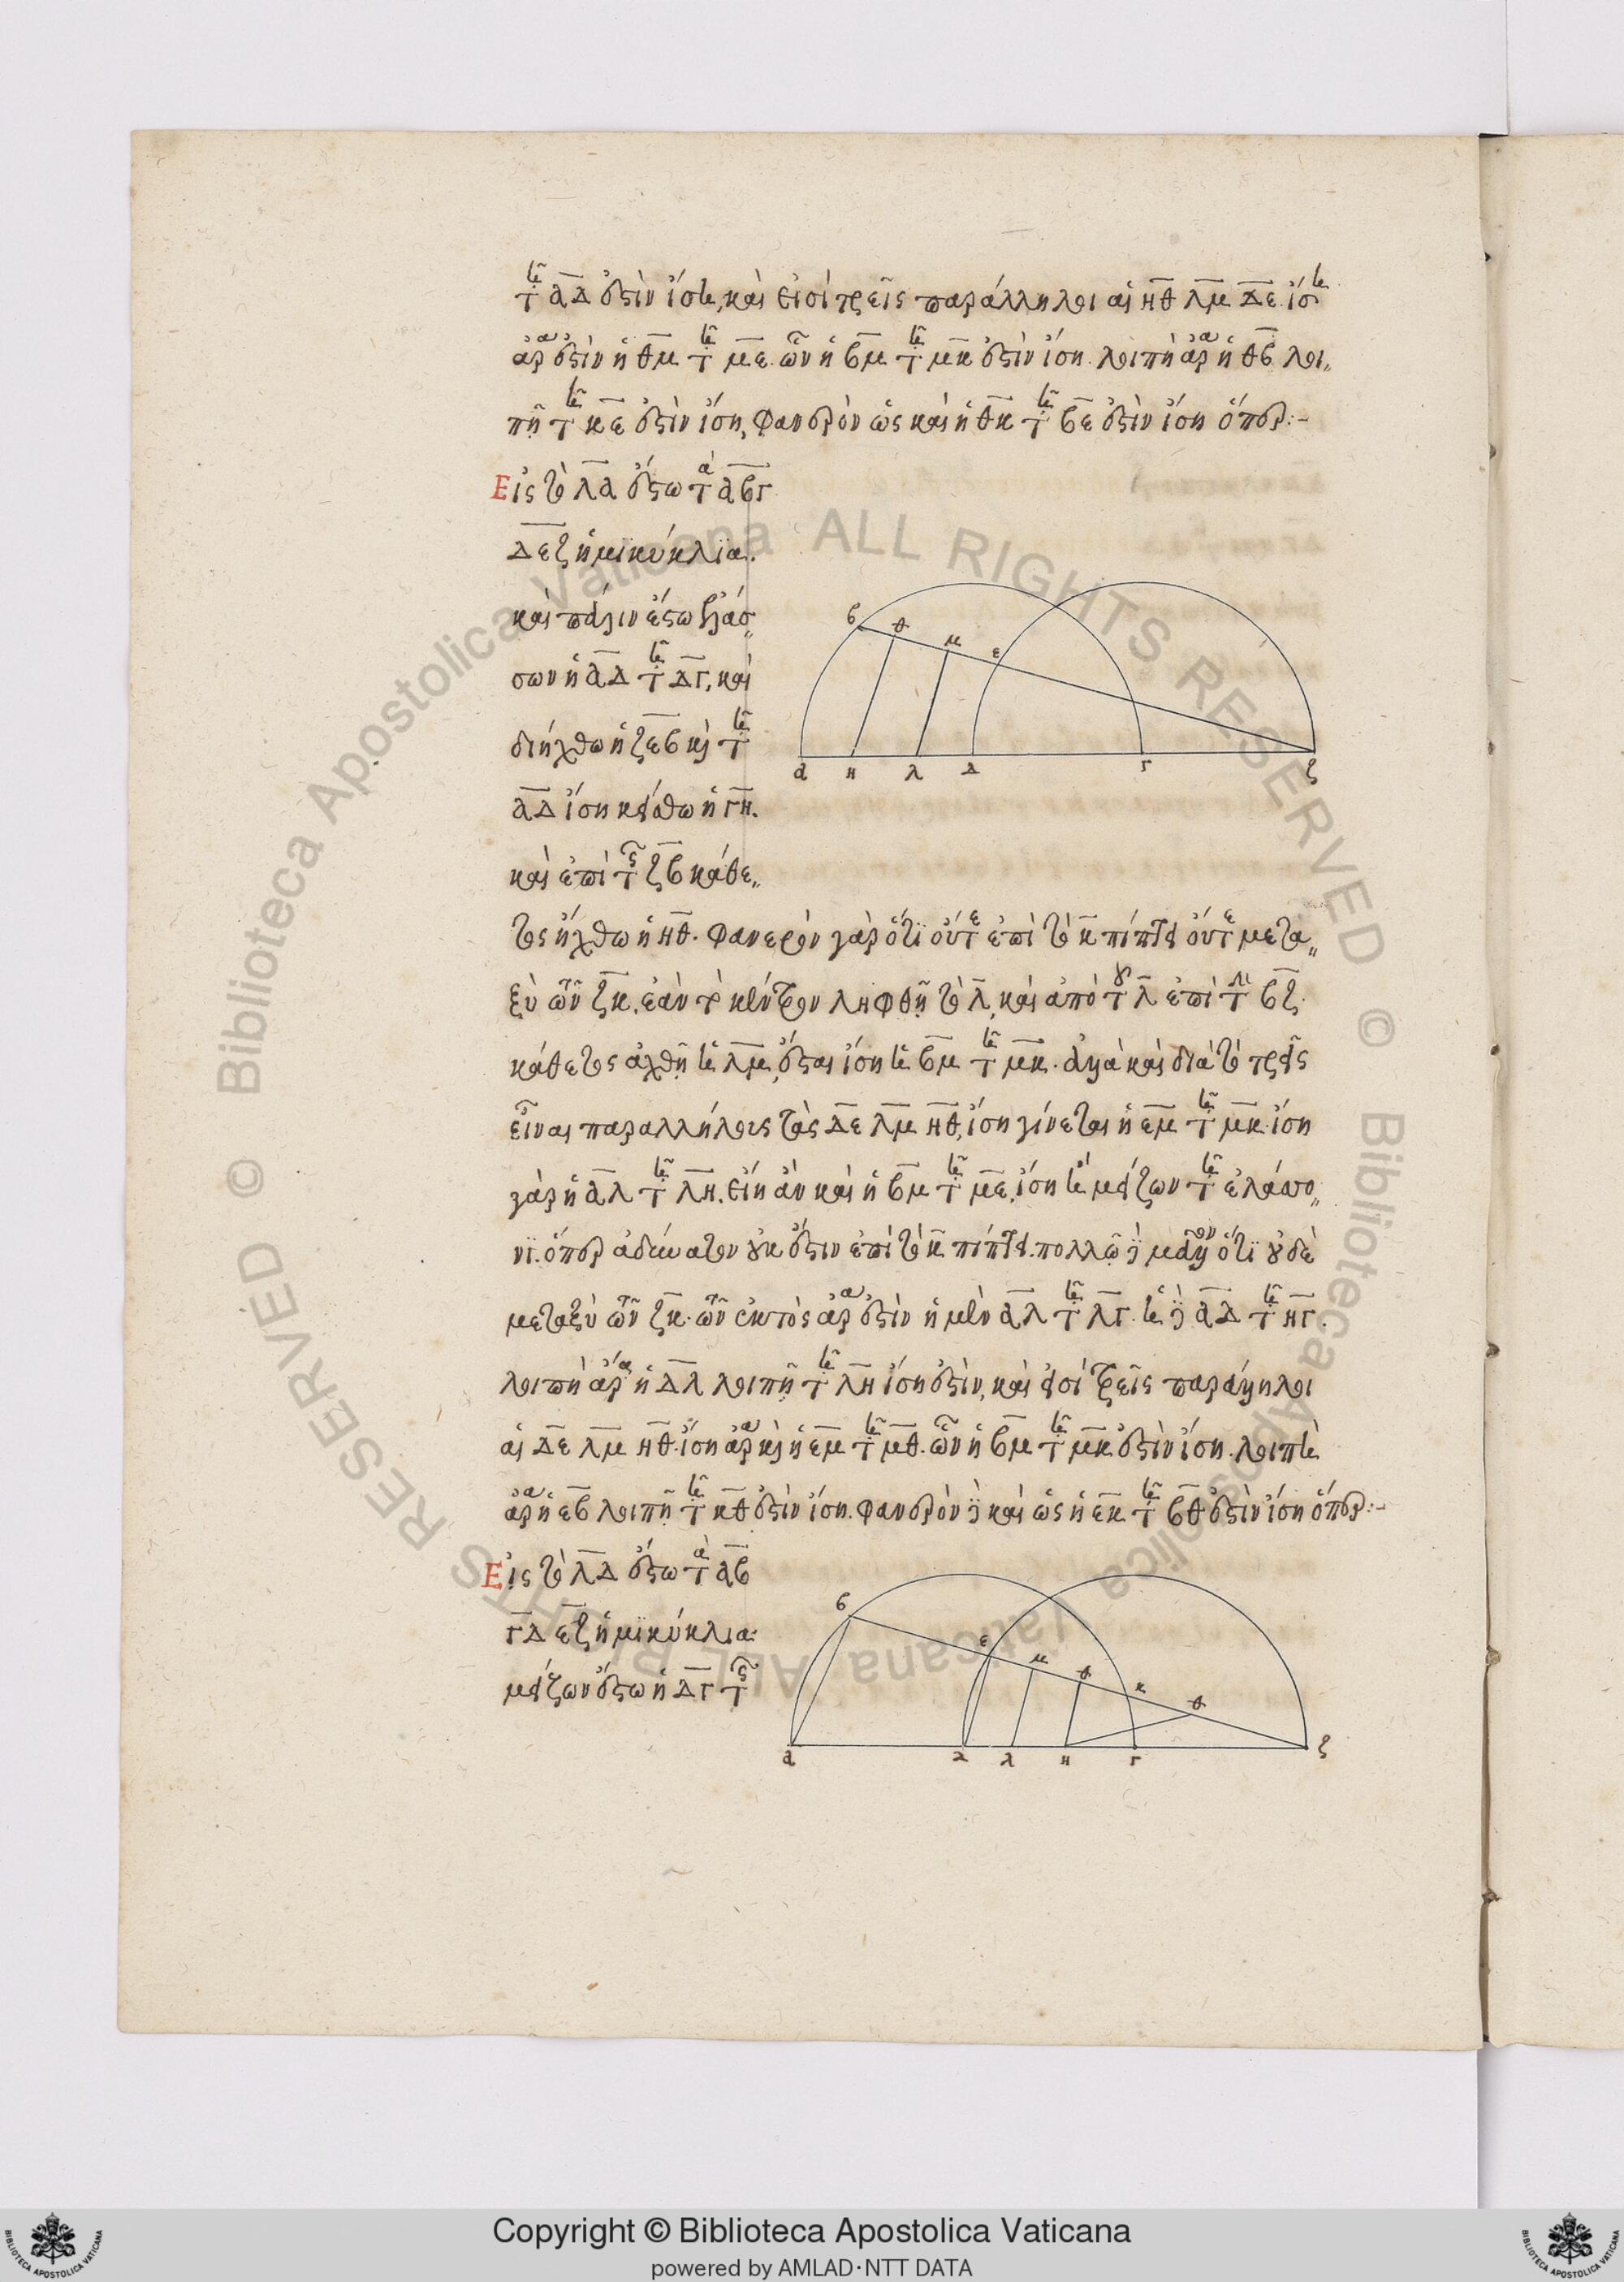 τῇ ΑΔ ἐστὶν ἴση, καὶ εἰσὶ τρεῖς παράλληλοι αἱ ΗΘ ΛΜ ΔΕ. ἴση
ἄρα ἐστὶν ἡ ΘΜ τῇ ΜΕ. ὧν ἡ ΒΜ τῇ ΜΚ ἐστὶν ἴση. λοιπὴ ἄρα ἡ ΘΒ λοι„
πῇ τῇ ΚΕ ἐστὶν ἴση, φανερὸν ὡς καὶ ἡ ΘΚ τῇ ΒΕ ἐστὶν ἴση ὅπερ:-
Εἰς τὸ ΛΑ ἔστω τὰ ΑΒΓ
ΔΕΖ ἡμικύκλια.
καὶ πάλιν ἔστω ἐλάσ„
σων ἡ ΑΔ τῇ ΔΓ, καὶ
διήχθω ἡ ΖΕΒ καὶ τῇ
ΑΔ ἴση κείσθω ἡ ΓΗ.
καὶ ἐπὶ τῆς ΖΒ κάθε„
τος ἤχθω ἡ ΗΘ. φανερὸν γὰρ ὅτι οὔτε ἐπὶ τὸ Κ πίπτει οὔτε μετα„
ξὺ τῶν ΖΚ. ἐὰν τὸ κέντρον ληφθῇ τὸ Λ, καὶ ἀπὸ τοῦ Λ ἐπὶ τὴν ΒΖ
κάθετος ἀχθῇ ἡ ΛΜ, ἔσται ἴση ἡ ΒΜ τῇ ΜΚ. ἀλλὰ καὶ διὰ τὸ τρεῖς
εἶναι παραλλήλους τὰς ΔΕ ΛΜ ΗΘ, ἴση γίνεται ἡ ΕΜ τῇ ΜΚ. ἴση
γὰρ ἡ ΑΛ τῇ ΛΗ. εἴη ἂν καὶ ἡ ΒΜ τῇ ΜΕ, ἴση ἡ μείζων τῇ ἐλάττο„
νι. ὅπερ ἀδύνατον οὐκ ἔστιν ἐπὶ τὸ Κ πίπτει. πολλῷ δὲ μᾶλλον ὅτι οὐδὲ
μεταξὺ τῶν ΖΚ. τῶν ἐκτὸς ἄρα ἐστὶν ἡ μὲν ΑΛ τῇ ΛΓ. ἡ δὲ ΑΔ τῇ ΗΓ.
λοιπὴ ἄρα ἡ ΔΛ λοιπῇ τῇ ΛΗ ἴση ἐστὶν, καὶ εἰσὶ τρεῖς παράλληλοι
αἱ ΔΕ ΛΜ ΗΘ. ἴση ἄρα καὶ ἡ ΕΜ τῇ ΜΘ. ὧν ἡ ΒΜ τῇ ΜΚ ἐστὶν ἴση. λοιπὴ
ἄρα ἡ ΕΒ λοιπῇ τῇ ΚΘ ἐστὶν ἴση. φανερὸν δὲ καὶ ὡς ἡ ΕΚ τῇ ΒΘ ἐστὶν ἴση ὅπερ:-
Εἰς τὸ ΛΔ ἔστω τὰ ΑΒ
ΓΔΕΖ ἡμικύκλια
μείζων ἔστω ἡ ΔΓ τῆς
Β Θ Μ Ε
Α Η Λ Δ Γ Ζ
Β Ε Μ Θ Κ Θ
Α Δ Λ Η Γ Ζ
© Biblioteca Apostolica Vaticana ALL RIGHTS RESERVED
© Biblioteca Apostolica Vaticana ALL RIGHTS RESERVED
Copyright © Biblioteca Apostolica Vaticana
powered by AMLAD·NTT DATA
BIBLIOTECA APOSTOLICA VATICANA
BIBLIOTECA APOSTOLICA VATICANA